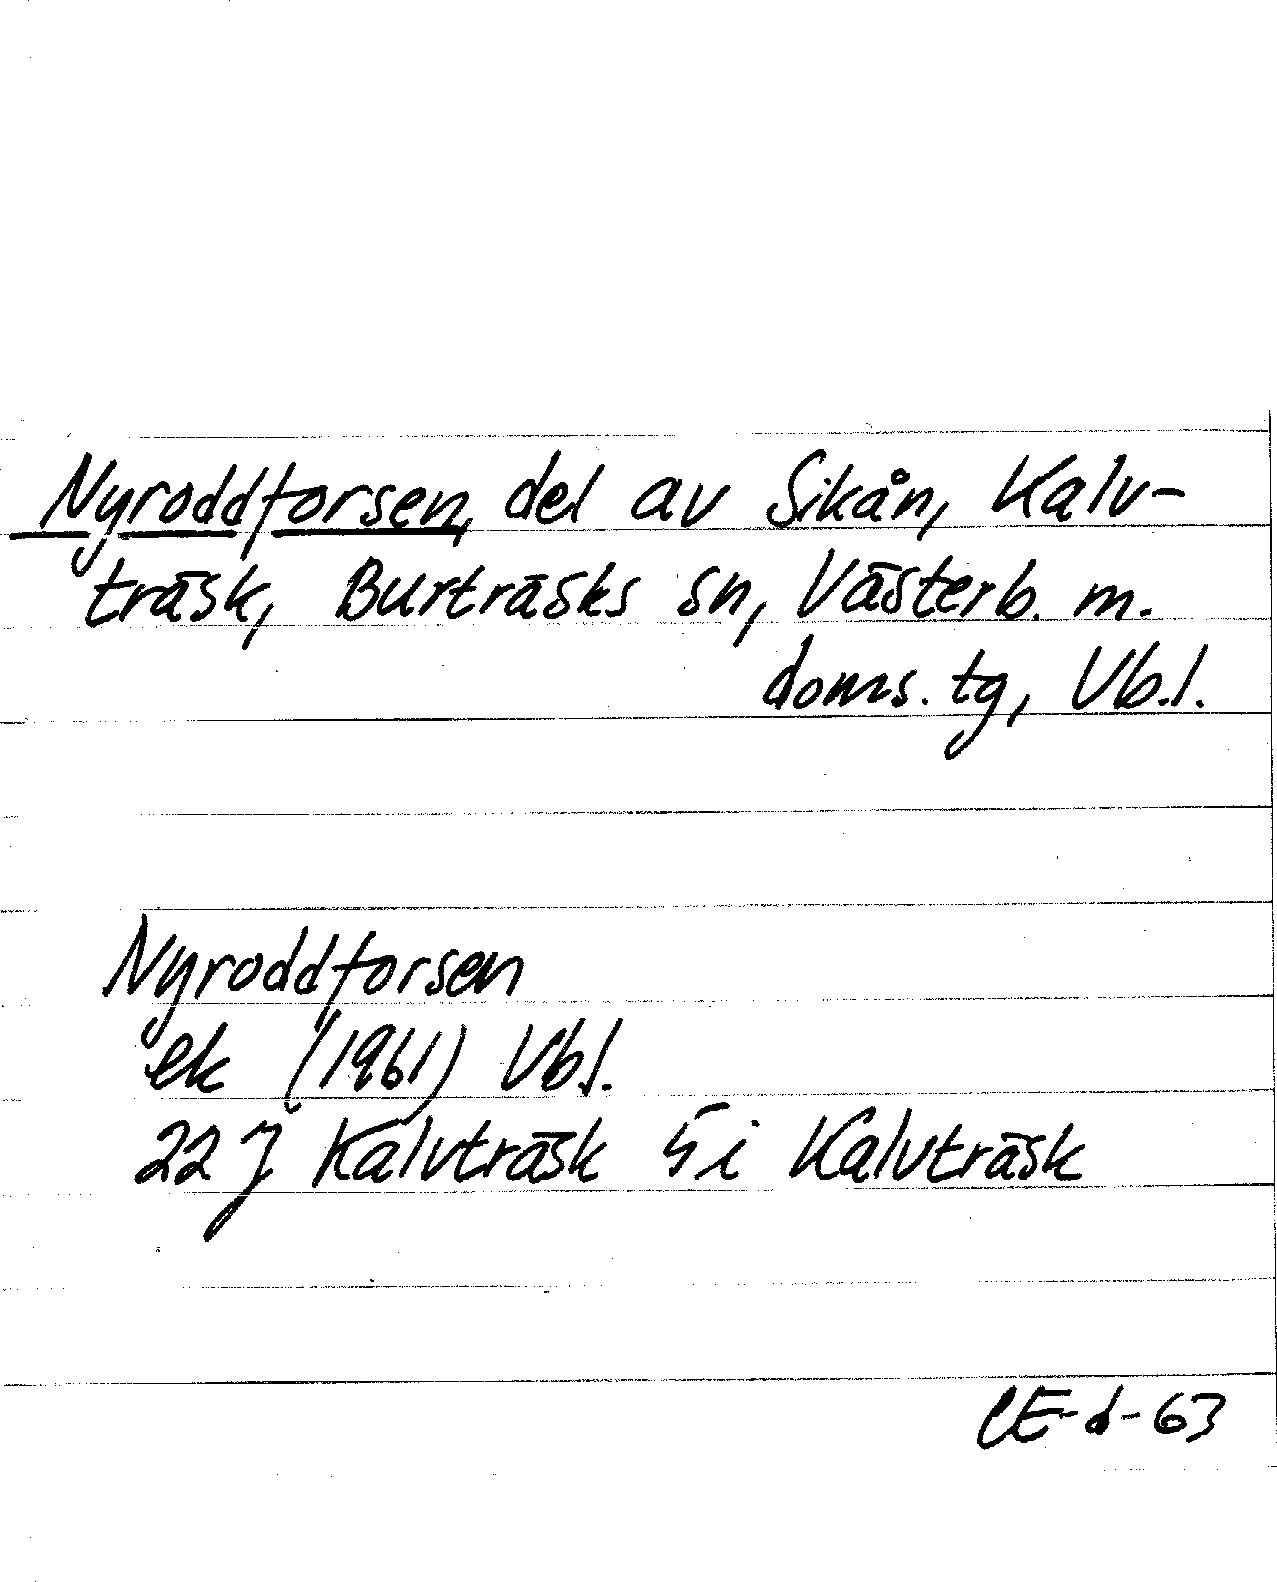 Nyroddforsen, del av Sikån, Kalv-
träsk, Burträsks sn, Västerb. m.
doms. tg, Vb.l.
Nyroddforsen
ek (1961) Vb.l.
22 J Kalvträsk 5 i Kalvträsk
CE-d-63